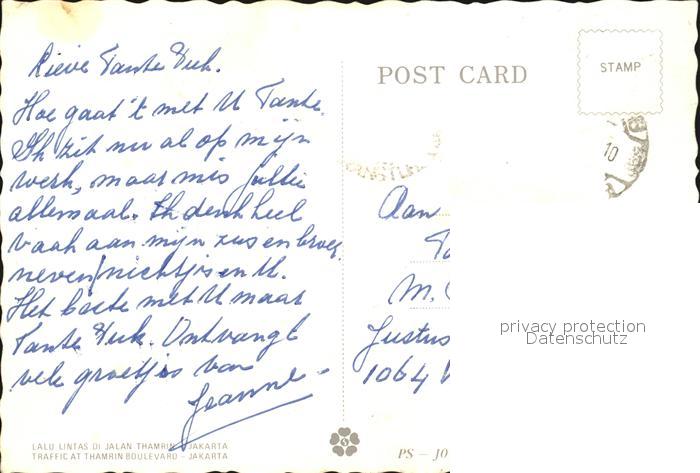 Lieve Tante Truk.
Hoe gaat 't met U Tante.
Ik zit nu al op mijn
werk, maar mis jullie
allemaal. Ik denk heel
vaak aan mijn zus en broer,
neven/nichtjes en U.
Het beste met U maar
Tante Truk. Ontvangt
vele groetjes van
Jeanne
LALU LINTAS DI JALAN THAMRIN - JAKARTA
TRAFFIC AT THAMRIN BOULEVARD - JAKARTA
POST CARD
STAMP
10
Aan
M.
Justus
1064
privacy protection
Datenschutz
PS - JO